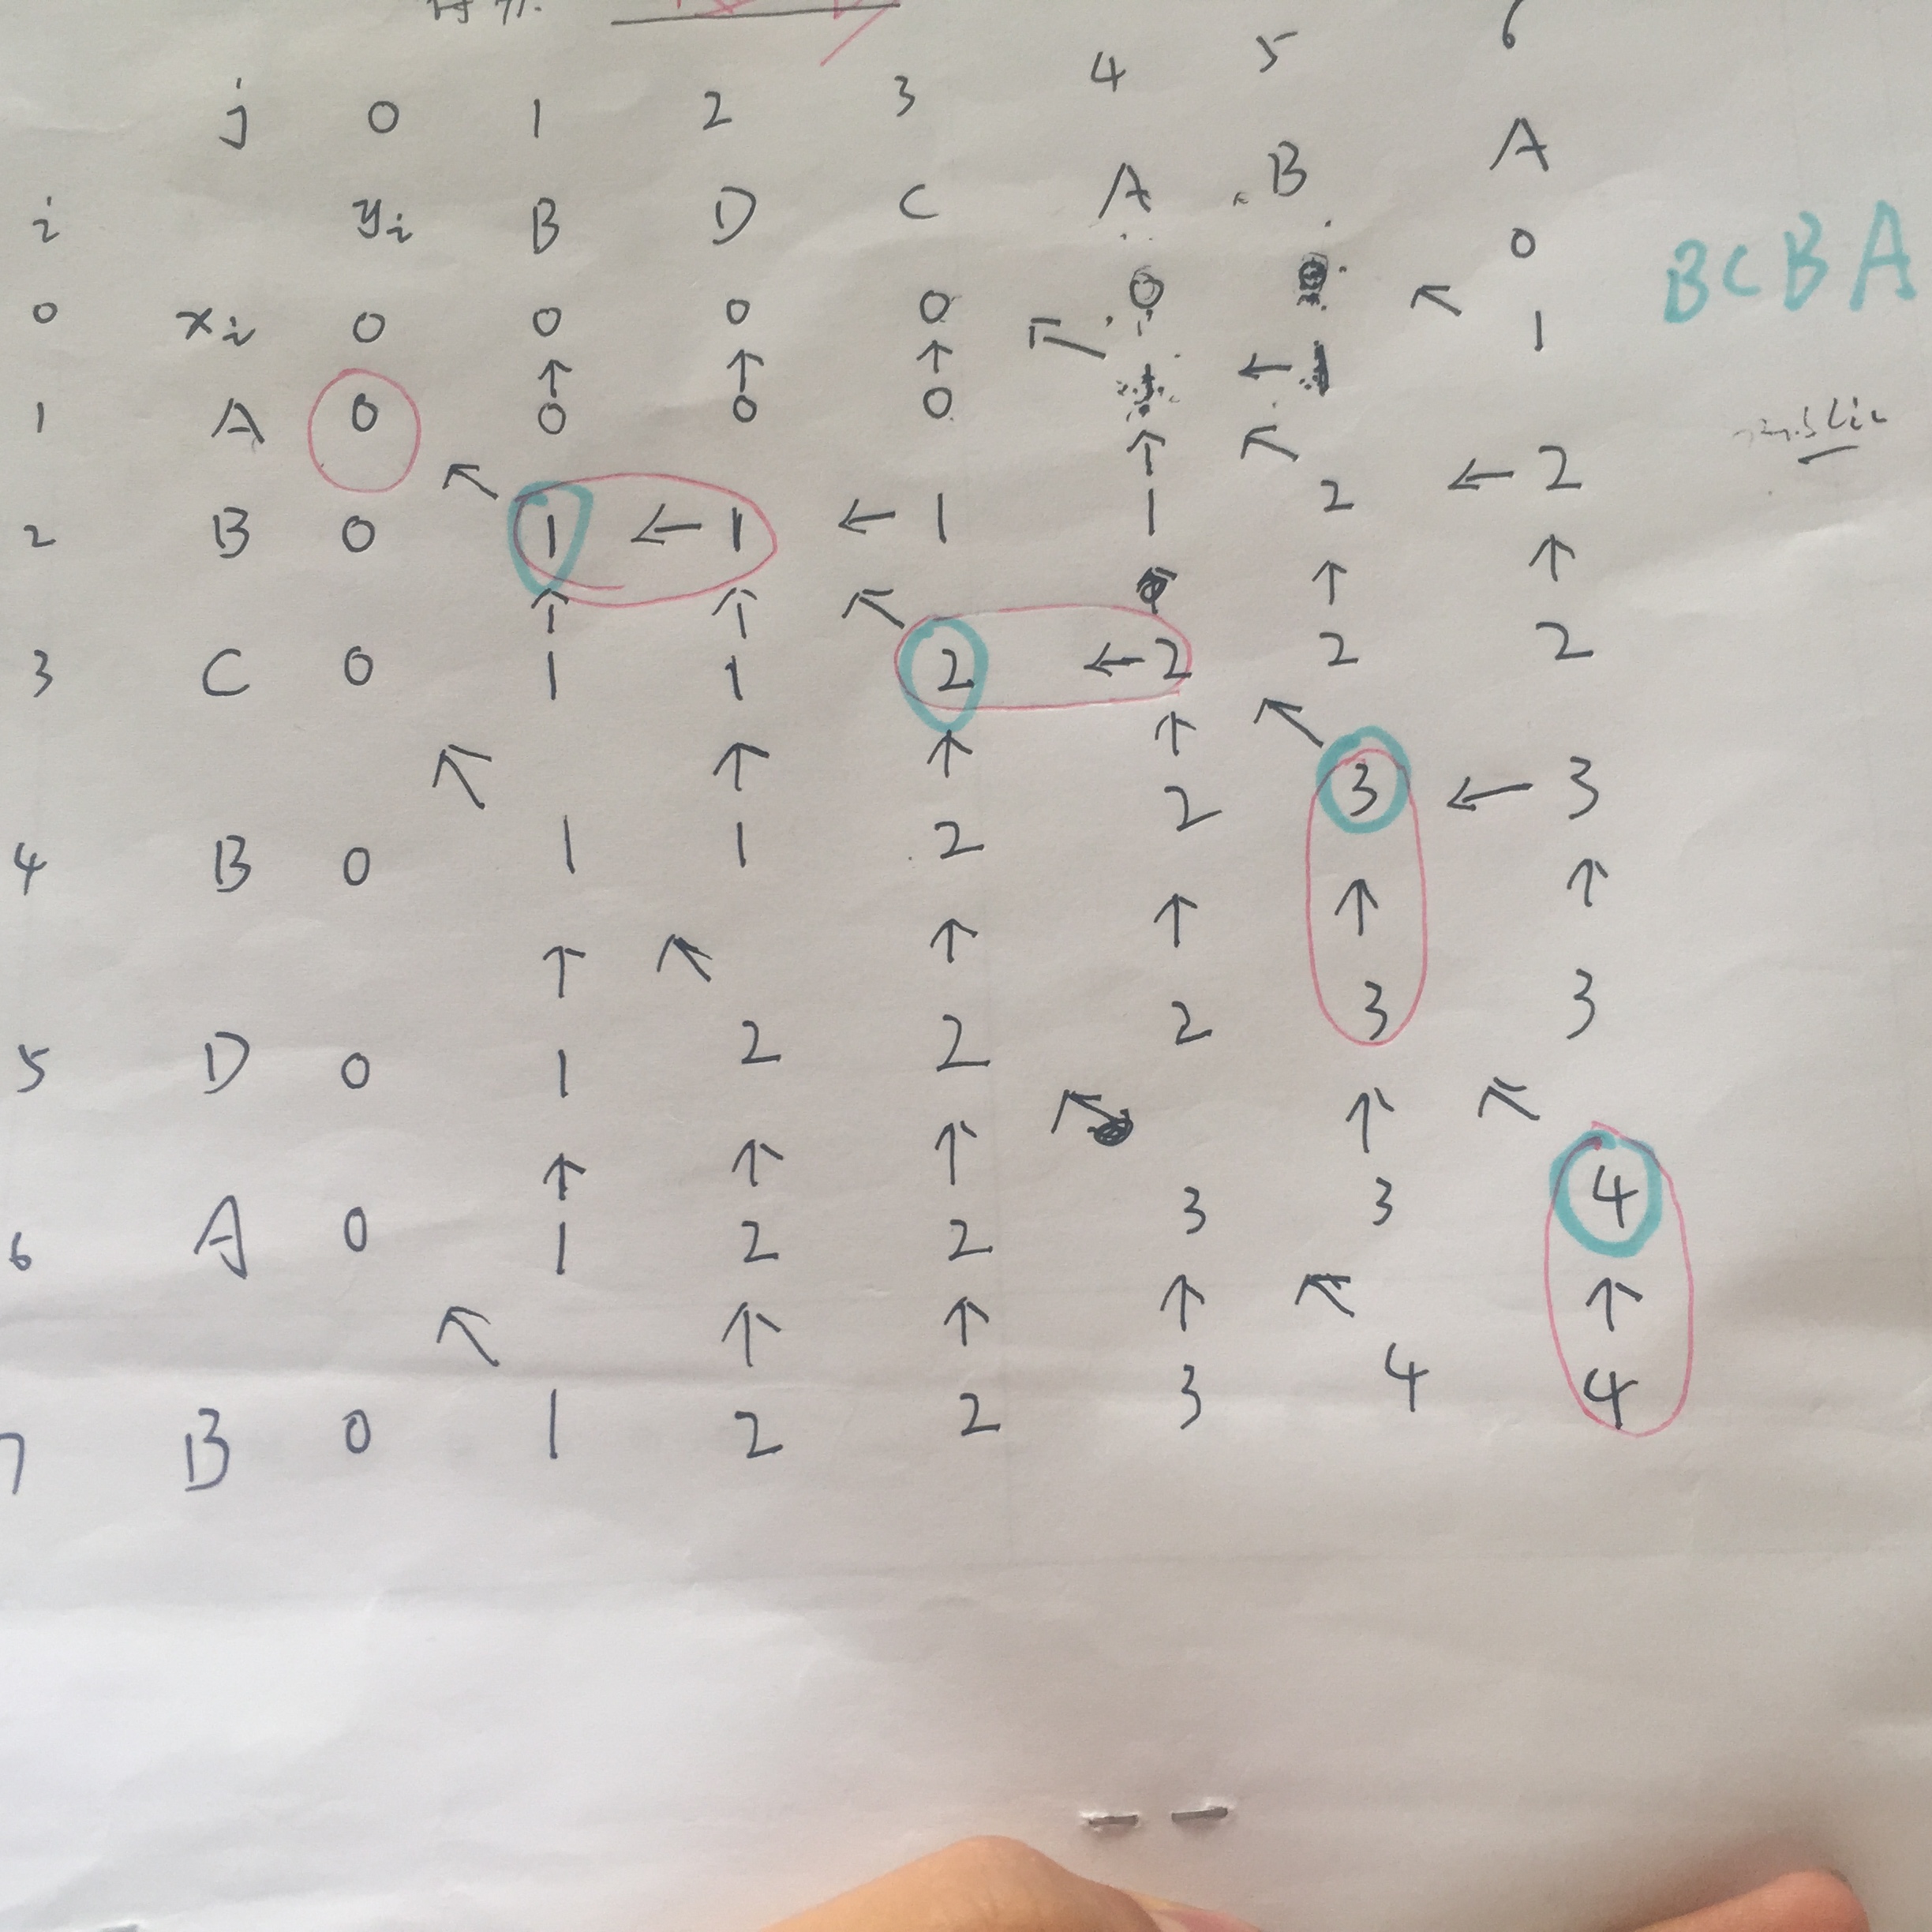 j 0 1 2 3 4 5 6
i yi B D C A B A
0 xi 0 0 0 0 0 0 0
↑ ↑ ↑ ↖ ↖
1 A 0 0 0 0 1 ← 1 1
↖ ↑ ↖
2 B 0 1 ← 1 ← 1 1 2 ← 2
↑ ↑ ↖ ↑ ↑
3 C 0 1 1 2 ← 2 2 2
↖ ↑ ↑ ↑ ↖
4 B 0 1 1 2 2 3 ← 3
↑ ↖ ↑ ↑ ↑ ↑
5 D 0 1 2 2 2 3 3
↑ ↑ ↑ ↖ ↑ ↖
6 A 0 1 2 2 3 3 4
↖ ↑ ↑ ↑ ↖ ↑
7 B 0 1 2 2 3 4 4
BCBA